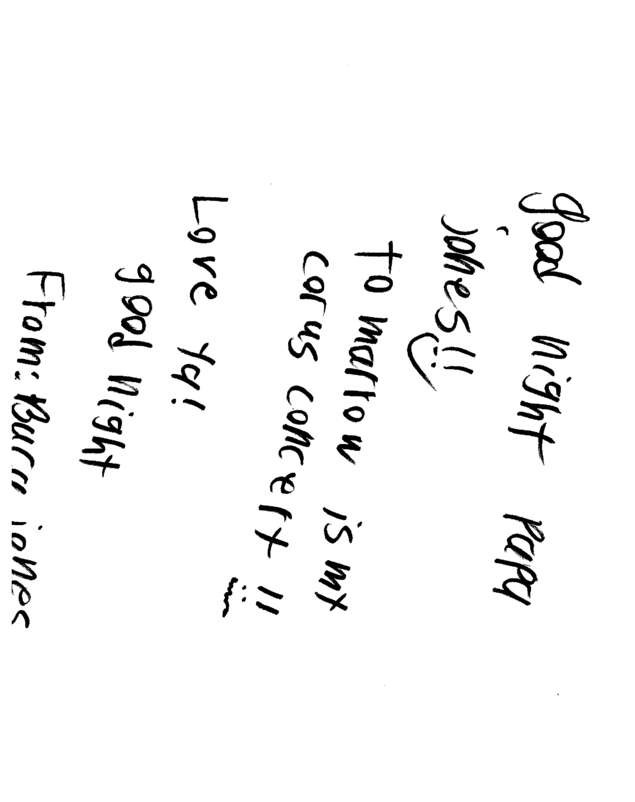 good night Papa
jones!! :)
to marrow is my
corus concert !!
Love Ya!
good night
From: jones